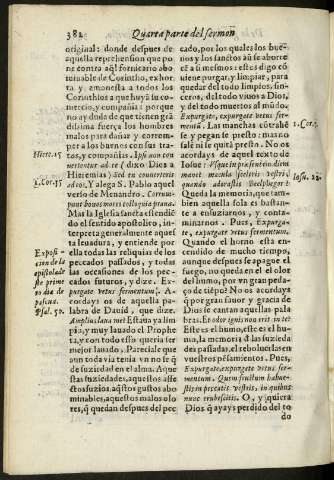 382
Quarta parte del sermon
original: donde despues de
aquella reprehension que po
ne contra aq̃l fornicario abo
minable de Corintho, exhor
ta y amonesta a todos los
Corinthios a que huyã su co-
mercio, y compañia: porque
no ay duda de que tienen grã
disima fuerça los hombres
malos para dañar y corrom-
per a los buenos con sus tra-
tos, y compañias. Ipsi non con
uertentur ad te (dixo Dios a
Hieremias) sed tu conuerteris
ad eos, Y alega S. Pablo aquel
verso de Menandro. Corrum-
punt bonos mores colloquia praua.
Mas la Iglesia sancta estendiẽ
do el sentido apostolico, in-
terpreta generalmente aques
ta leuadura, y entiende por
ella todas las reliquias de los
peccados passados, y todas
las occasiones de los pec-
cados futuros, y dize. Ex-
purgate vetus fermentum. A-
cordays os de aquella pa-
labra de Dauid, que dize.
Amplius laua me? Estaua ya lim
pio, y muy lauado el Prophe
ta, y con todo esso queria ser
mejor lauado, Pareciale que
aun toda via tenia vn no se q̃
de suziedad en el alma. Aque
stas suziedades, aquestos affe
ctos suzios, aq̃stos gustos abo
minables, aquestos malos olo
res, q̃ quedan despues del pec
Hiere. 15
1. Cor. 15
Exposi-
cion de la
epistola de
ste prime
ro dia de
pascua.
Psal. 50.
cado, por los quales los bue-
nos y los sanctos aũ se aborre
cẽ a si mesmos: estos digo cõ
uiene purgar, y lĩpiar, para
quedar del todo limpios, sin-
ceros, del todo viuos a Dios,
y del todo muertos al mũdo.
Expurgate, expurgate vetus fer-
mentũ. Las manchas cũtrahẽ
se y pegan se presto: mas no
salẽ ni se quitã presto. No os
acordays de aquel texto de
Iosue: Vsque in præsentẽ diem
manet macula sceleris vestri,
quando adorastis Beelphegor?
Queda la memoria, que tam-
bien aquella sola es bastan-
te a ensuziaros, y conta-
minaros. Pues, Expurgate,
expurgate, vetus fermentum.
Quando el horno esta en-
cendido de mucho tiempo,
aunque despues se apague el
fuego, no queda en el el olor
del humo, por vn gran peda-
ço de tiẽpo? No os acordays
q̃ por gran fauor y gracia de
Dios se cantan aquellas pala
bras. Et odor ignis non erit in te?
Este es el humo, este es el hu
mo, la memoria d̃ las suzieda
des passadas, el rebolucarlas en
vuestros pẽsamientos. Pues,
Expurgate, expurgate vetus fer-
mentum. Quem fructum habue-
stis in peccatis vestris, in quibus
nunc erubescitis. O, y quiera
Dios q̃ ayays perdido del to
do
1. Cor. 5.
Iosu. 22.